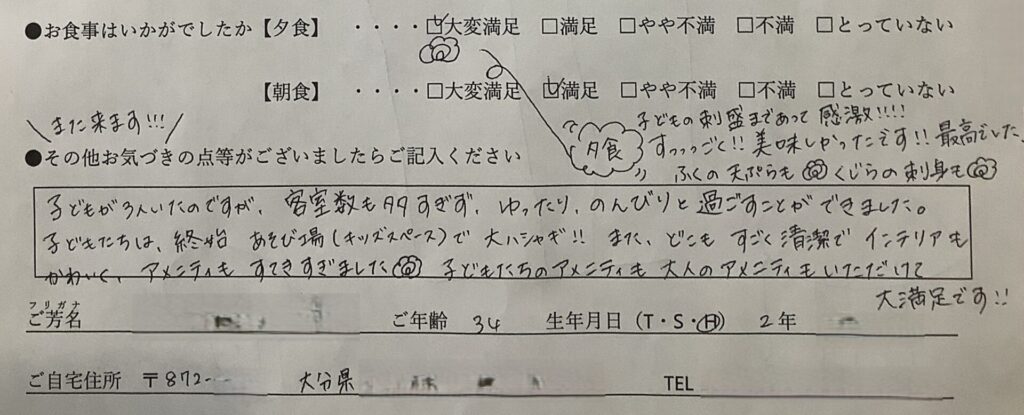 ●お食事はいかがでしたか【夕食】 ・・・・☑大変満足 □満足 □やや不満 □不満 □とっていない
【朝食】 ・・・・□大変満足 ☑満足 □やや不満 □不満 □とっていない
また来ます!!!
夕食
子どもの刺盛まであって感激!!!!
すっっっごく!!美味しかったです!!最高でした、
ふくの天ぷらも くじらの刺身も
●その他お気づきの点等がございましたらご記入ください
子どもが3人いたのですが、客室数も多すぎず、ゆったり、のんびりと過ごすことができました。
子どもたちは、終始 あそび場(キッズスペース)で大ハシャギ!! また、どこも すごく清潔で インテリアも
かわいく、アメニティも すてきすぎました 子どもたちのアメニティも 大人のアメニティもいただけて
大満足です!!
フリガナ
ご芳名 ご年齢 34 生年月日(T・S・H) 2年
ご自宅住所 〒872- 大分県 TEL